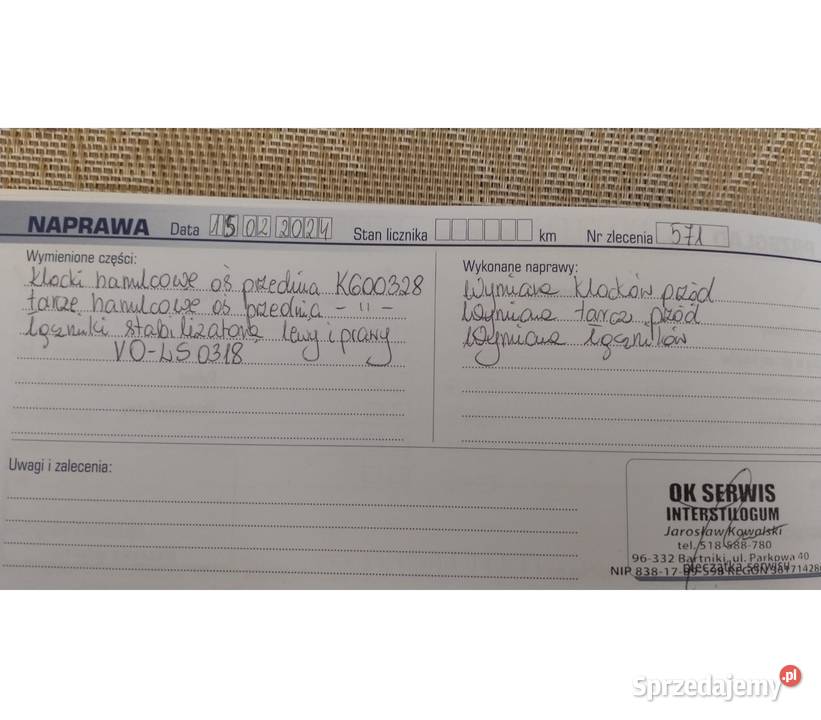 NAPRAWA Data 15 02 2024 Stan licznika km Nr zlecenia 571
Wymienione części:
klocki hamulcowe oś przednia K600328
tarcze hamulcowe oś przednia - 11 -
łączniki stabilizatora lewy i prawy
VO-LS 0318
Wykonane naprawy:
Wymiana klocków przód
Wymiana tarcz przód
Wymiana łączników
Uwagi i zalecenia:
OK SERWIS
INTERSTILOGUM
Jarosław Kowalski
tel. 518-588-780
96-332 Bartniki, ul. Parkowa 40
NIP 838-17- REGON
pieczątka serwisu
Sprzedajemy.pl